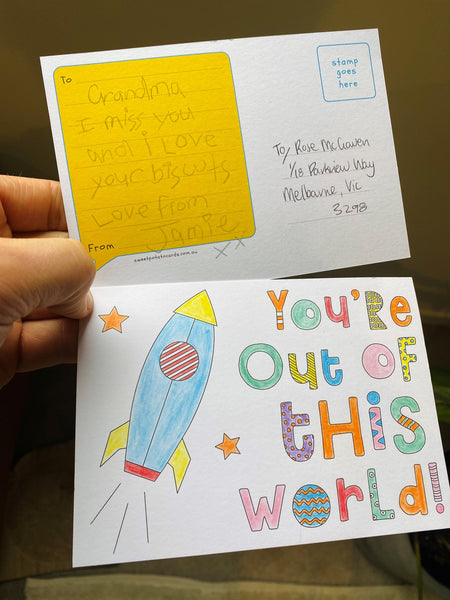 To
Grandma
I miss you
and i Love
your biscuits
Love from
Jamie
xx
From
sweetpotatocards.com.au
stamp
goes
here
To/ Rose McGraven
1/18 Parkview Way
Melbourne, Vic
3298
You're
Out of
this
world!!